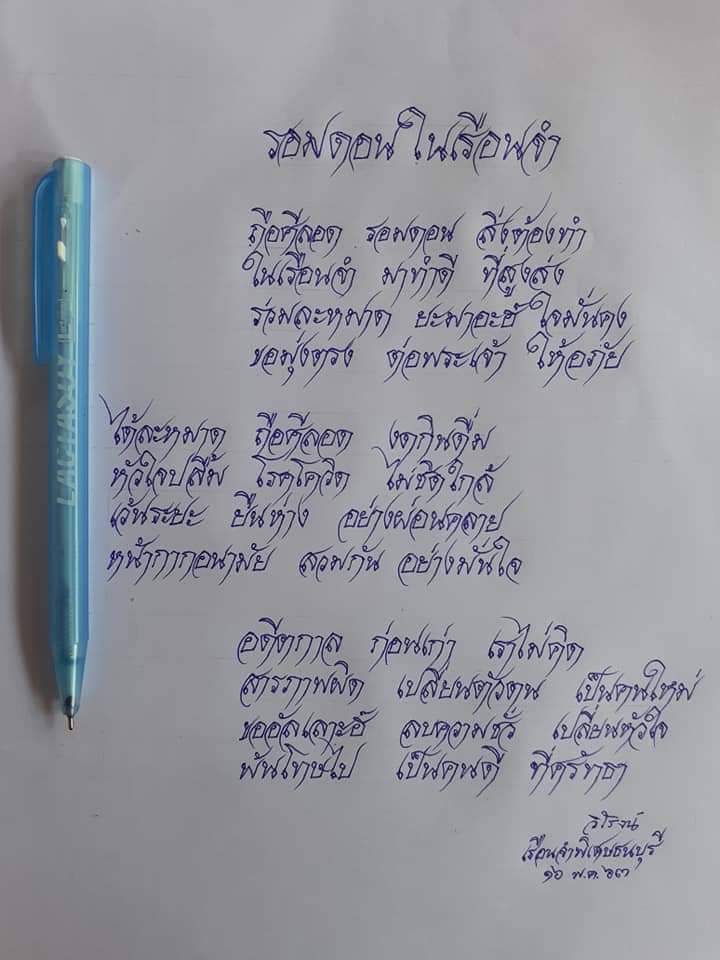 รอมดอน ในเรือนจำ
ถือศีลอด รอมดอน สิ่งต้องทำ
ในเรือนจำ มาทำดี ที่สูงส่ง
ร่วมละหมาด ยะมาอะฮ์ ใจมั่นคง
ขอมุ่งตรง ต่อพระเจ้า ให้อภัย
ได้ละหมาด ถือศีลอด งดกินดื่ม
หัวใจปลื้ม โรคโควิด ไม่ชิดใกล้
เว้นระยะ ยืนห่าง อย่างผ่อนคลาย
หน้ากากอนามัย สวมกัน อย่างมั่นใจ
อดีตกาล ก่อนเก่า เราไม่คิด
สารภาพผิด เปลี่ยนตัวตน เป็นคนใหม่
ขออัลเลาะฮ์ ลบความชั่ว เปลี่ยนหัวใจ
พ้นโทษไป เป็นคนดี ที่ศรัทธา
วิโรจน์
เรือนจำพิเศษธนบุรี
๑๖ พ.ค. ๖๓